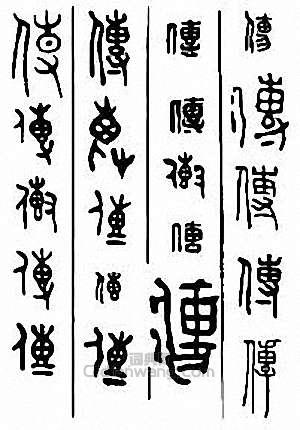 傳傳傳傳傳
傳傳傳傳傳
傳傳傳傳傳
傳傳傳傳傳